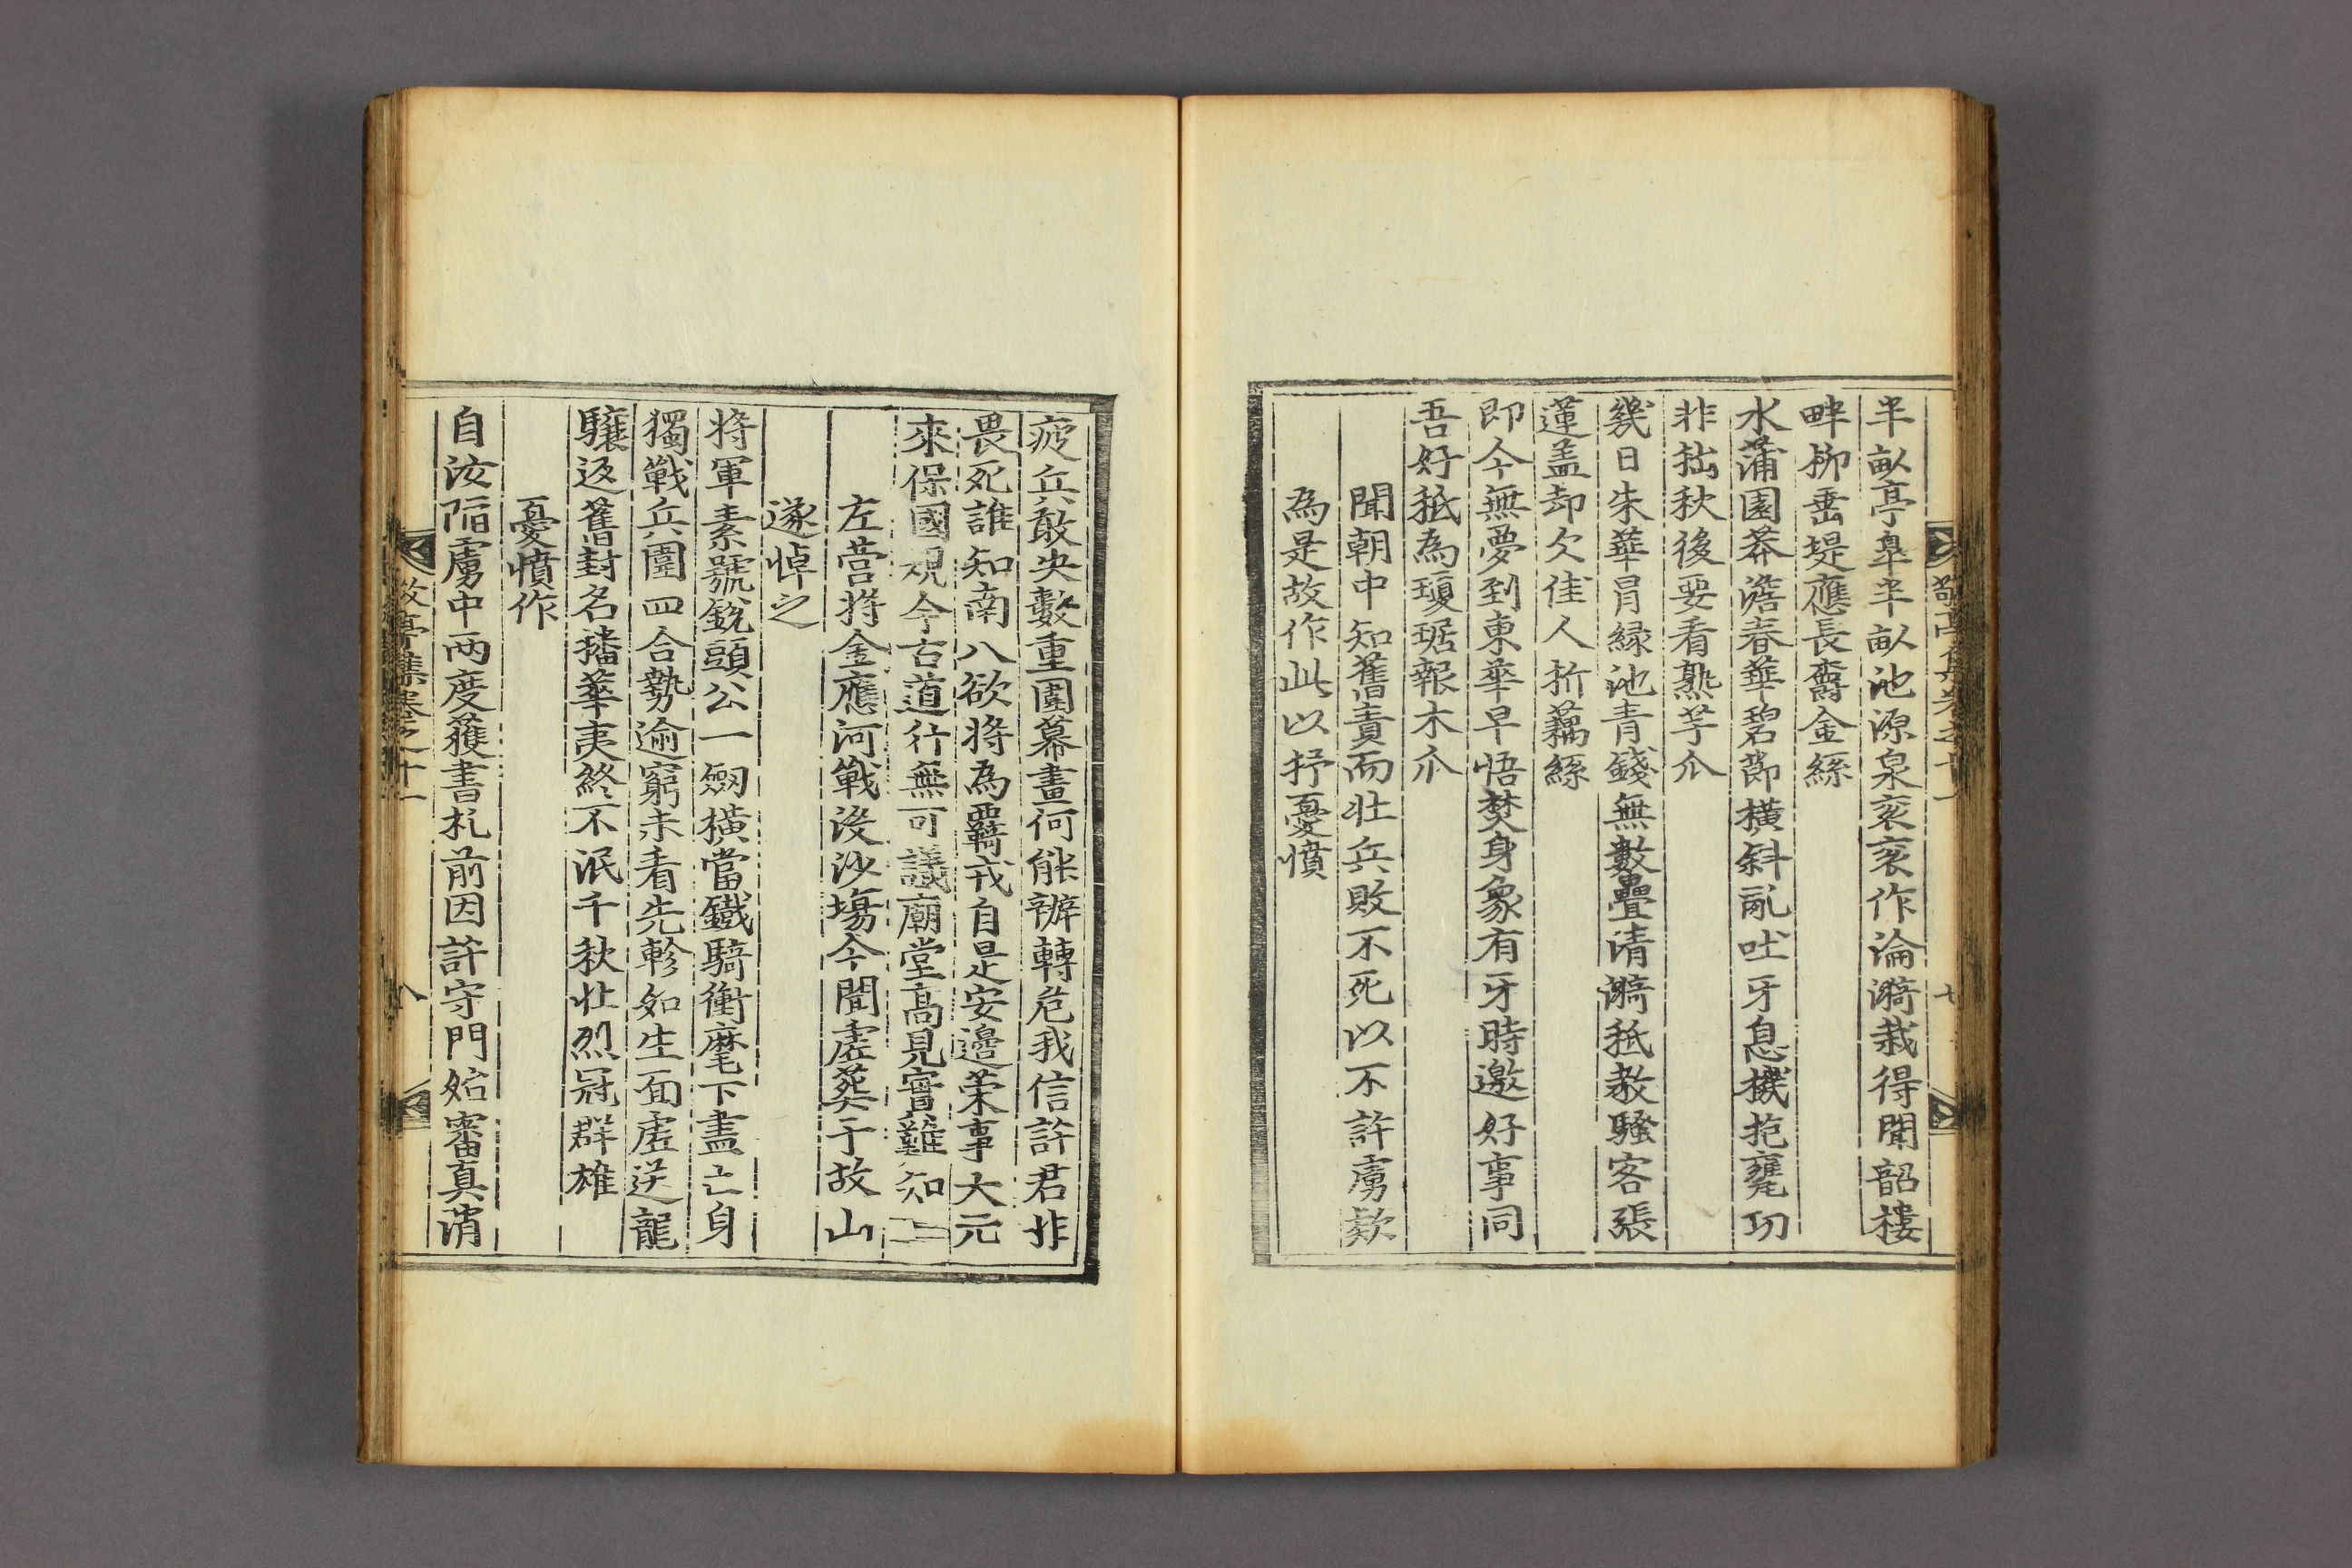 敬亭集卷之十一
七
半畝亭臯半畝池源泉衮衮作淪漪栽得閒韶樓
畔柳垂堤應長欝金絲
水蒲園莽澹春華碧莭橫斜亂吐牙息機抱甕功
非拙秋後要看熟芋瓜
幾日朱華冐緑池青錢無數疊清漪秪教騷客張
蓮盖却欠佳人折藕絲
即今無夢到東華早悟焚身象有牙時邀好事同
吾好秪為瓊琚報木瓜
聞朝中知舊責而壮兵敗不死以不許虜欵
為是故作此以抒憂憤
疲兵敢央數重圍幕畫何能辦轉危我信許君非
畏死誰知南八欲將為羈戎自是安邊策事大元
來保國規今古道行無可議廟堂高見實難知
左营將金應河戰沒沙場今聞虛葬于故山
遂悼之
將軍素號銳頭公一劒橫當鐵騎衝麾下盡亡身
獨戰兵圍四合勢逾窮未看先軫如生面虛送龍
驤返舊封名播華夷終不泯千秋壮烈冠群雄
憂憤作
自汝陷虜中兩度獲書札前因許守門始審真消
敬亭集卷之十一
八